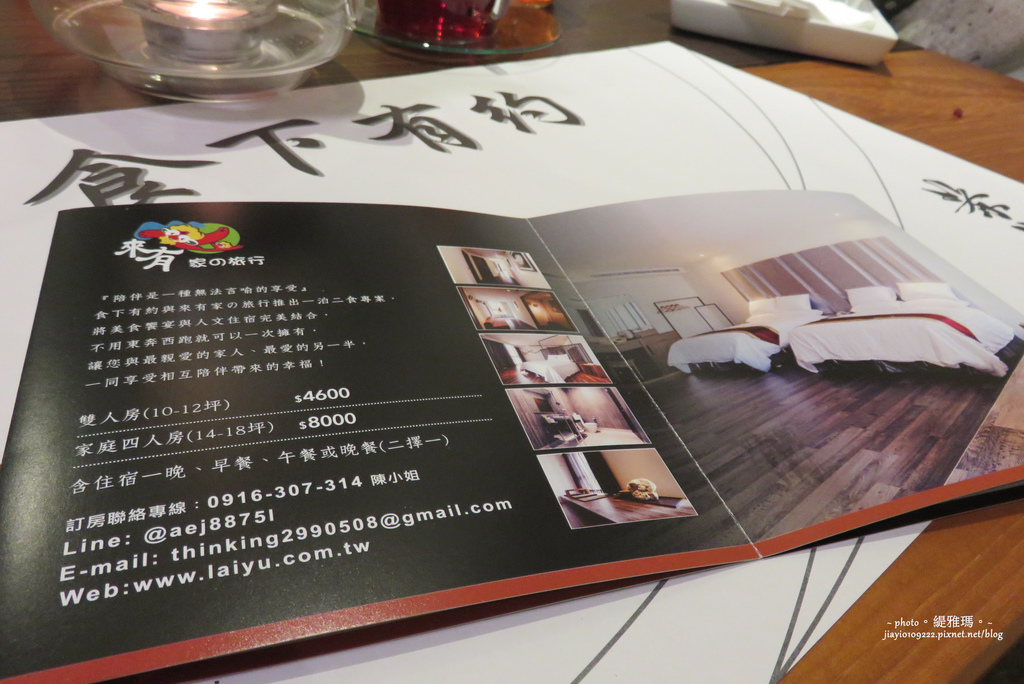 食下有約
來有 家の旅行
『陪伴是一種無法言喻的享受』
食下有約與來有家の旅行推出一泊二食專案，
將美食饗宴與人文住宿完美結合，
不用東奔西跑就可以一次擁有，
讓您與最親愛的家人、最愛的另一半，
一同享受相互陪伴帶來的幸福！
雙人房(10-12坪) $4600
家庭四人房(14-18坪) $8000
含住宿一晚、早餐、午餐或晚餐(二擇一)
訂房聯絡專線：0916-307-314 陳小姐
Line: @aej8875l
E-mail: thinking2990508@gmail.com
Web:www.laiyu.com.tw
~ photo。緹雅瑪。~
jiayio109222.pixnet.net/blog